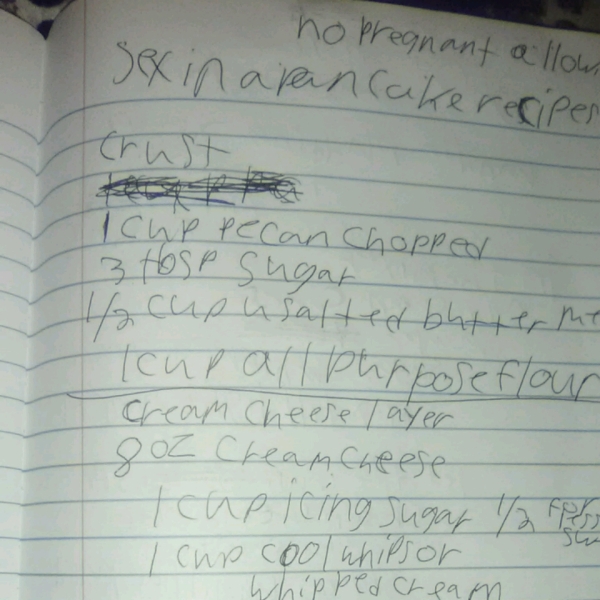 no pregnant allow
sex in a pan cake recipes
crust
1 cup pecan chopped
3 tbsp sugar
1/2 cup usalted butter me
1 cup all purpose flour
cream cheese layer
8 oz cream cheese
1 cup icing sugar 1/2 for
1 cup cool whips or
whipped cream